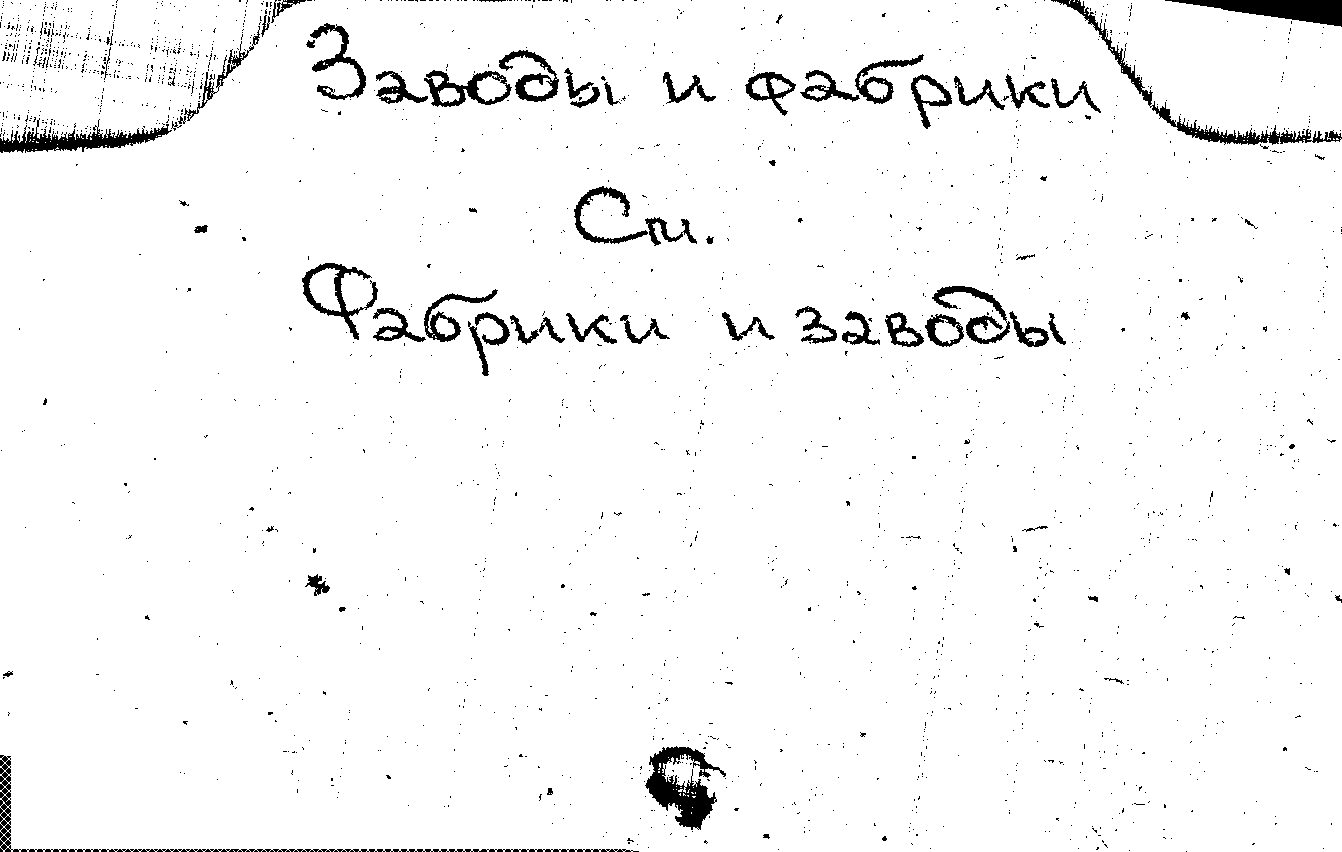 Заводы и фабрики
См.
Фабрики и заводы